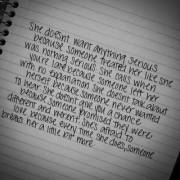 She doesnt want anything serious
because someone treated her like she
was nothing serious. She when
you're late because someone left her
with no explanation. She doesn't talk about
herself because someone never wanted
to hear. She doesn't give you a chance
because someone promised they were
different and weren't. She's afraid to
love because every time she does, someone
breaks her a little bit more.